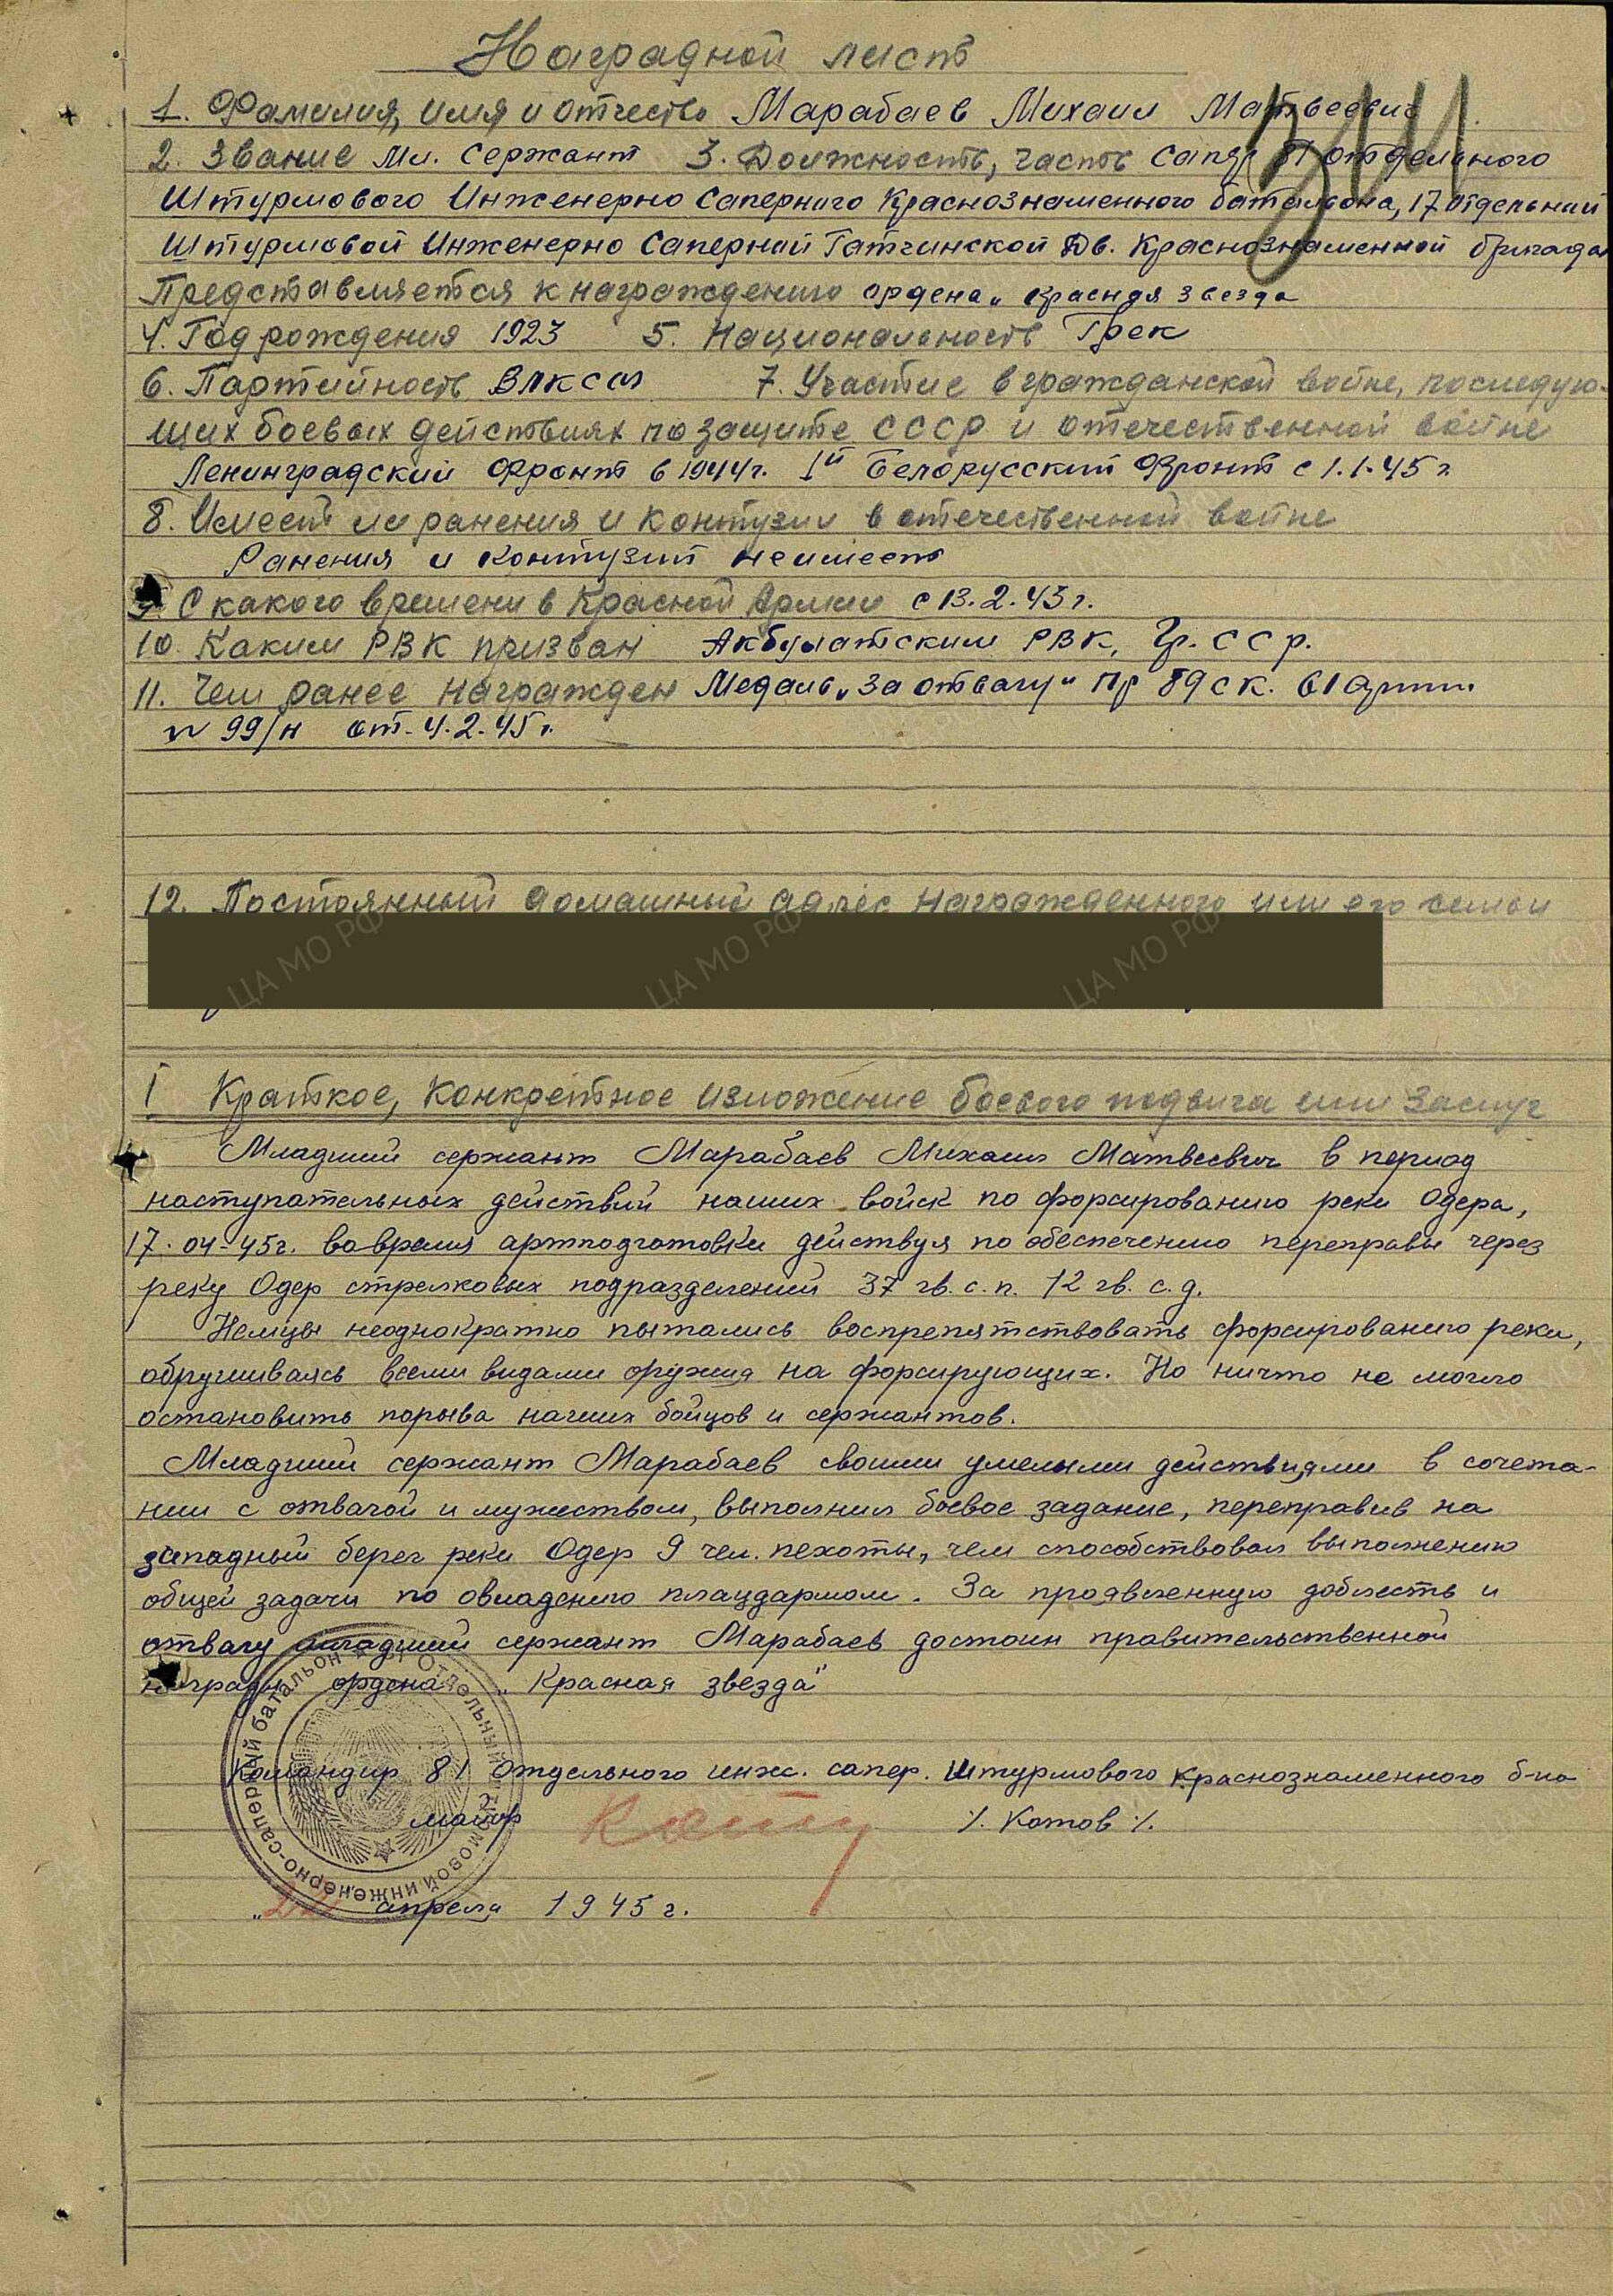 Наградной лист
1. Фамилия, имя и отчество Марабаев Михаил Матвеевич
2. Звание мл. сержант 3. Должность, часть сапер 81 отдельного
Штурмового Инженерно Саперного Краснознаменного батальона, 17 отдельной
Штурмовой Инженерно Саперной Гатчинской Дв. Краснознаменной бригады
Представляется к награждению ордена „Красная звезда
4. Год рождения 1923 5. Национальность Грек
6. Партийность ВЛКСМ 7. Участие в гражданской войне, последую-
щих боевых действиях по защите СССР и отечественной войне
Ленинградский Фронт в 1944г. Iй Белорусский Фронт с 1.1.45г
8. Имеет ли ранения и контузии в отечественной войне
Ранения и контузий неимеет
9. С какого времени в Красной Армии с 13.2.43г.
10. Каким РВК призван Акбулатским РВК, Гр. ССР.
11. Чем ранее награжден Медаль „За отвагу" Пр 89 ск. 61 Армии
N 99/н от 4.2.45г.
12. Постоянный домашный адрес награжденного или его семьи
I Краткое, конкретное изложение боевого подвига или заслуг
Младший сержант Марабаев Михаил Матвеевич в период
наступательных действий наших войск по форсированию реки Одера,
17.04-45г. во время артподготовки действуя по обеспечению переправы через
реку Одер стрелковых подразделений 37 гв. с.п. 12 гв. с.д.
Немцы неоднократно пытались воспрепятствовать форсированию реки,
обрушиваясь всеми видами оружия на форсирующих. Но ничто не могло
остановить порыва наших бойцов и сержантов.
Младший сержант Марабаев своими умелыми действиями в сочета-
нии с отвагой и мужеством, выполнил боевое задание, переправив на
западный берег реки Одер 9 чел. пехоты, чем способствовал выполнению
общей задачи по овладению плацдармом. За проявленную доблесть и
отвагу младший сержант Марабаев достоин правительственной
награды ордена „Красная звезда"
Командир 81 отдельного инж. сапер. Штурмового Краснознаменного б-на
майор /. Котов /.
„22 апреля 1945г.